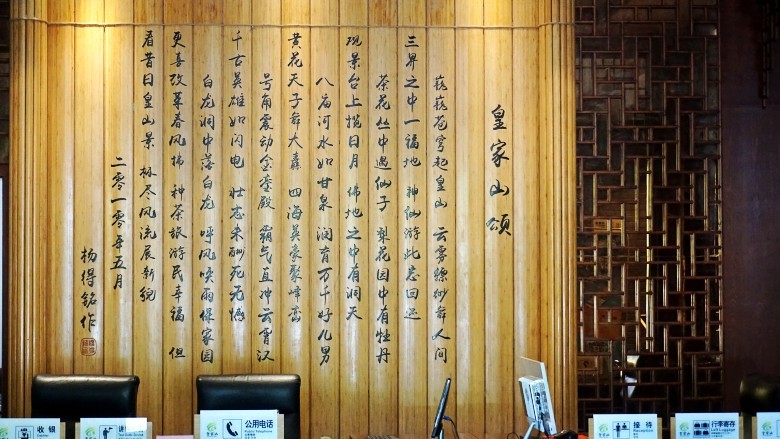 皇家山颂
巍巍苍穹起皇山 云雾缥缈舞人间
三界之中一福地 神仙游此忘回返
茶花丛中遇仙子 梨花园中有牡丹
观景台上揽日月 佛地之中有洞天
八庙河水如甘泉 润育万千好儿男
黄花天子舞大纛 四海英豪聚峰峦
号角震动金銮殿 霸气直冲云霄汉
千古英雄如闪电 壮志未酬死无憾
白龙洞中落白龙 呼风唤雨保家园
更喜改革春风拂 种茶旅游民幸福 但
看昔日皇山景 极尽风流展新貌
二零一零年五月
杨得铭作
收银
Cashier
公用电话
Public Telephone
接待
Reception
行李寄存
Left Luggage